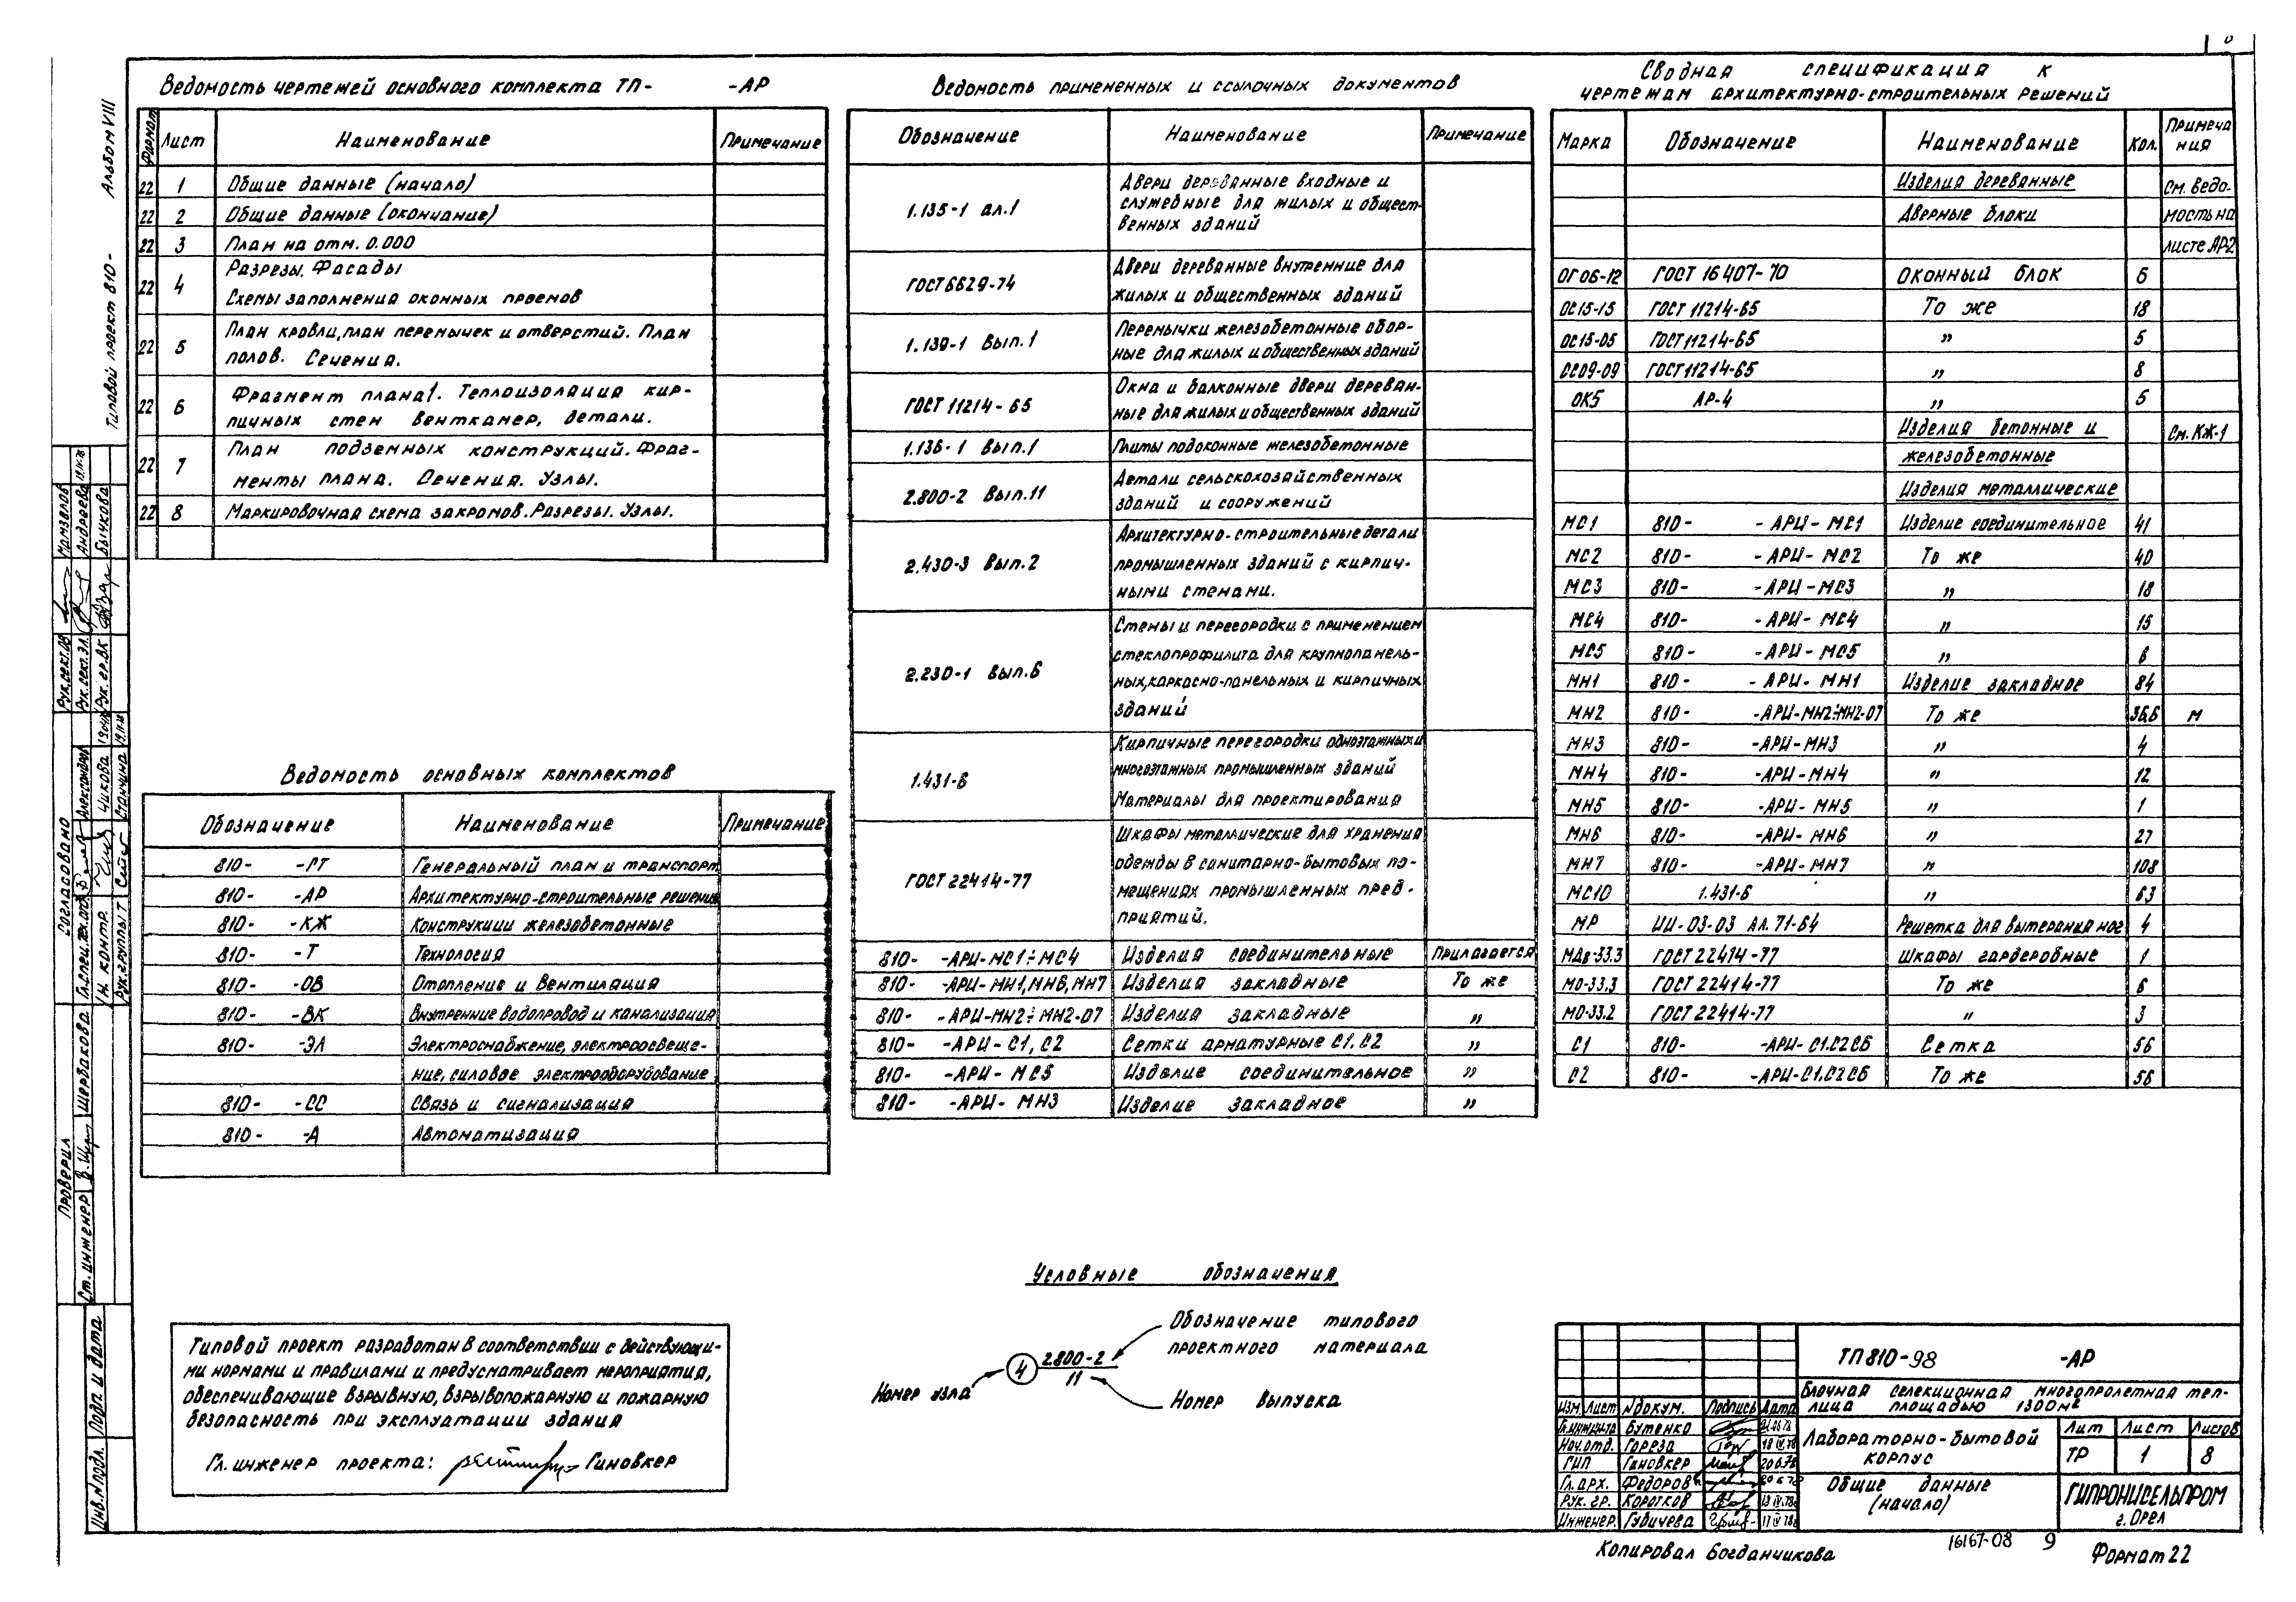 Ведомость чертежей основного комплекта ТП- -АР
Формат Лист Наименование Примечание
22 1 Общие данные (начало)
22 2 Общие данные (окончание)
22 3 План на отм. 0.000
22 4 Разрезы. Фасады
Схемы заполнения оконных проемов
22 5 План кровли, план перемычек и отверстий. План
полов. Сечения.
22 6 Фрагмент плана 1. Теплоизоляция кир-
пичных стен венткамер, детали.
22 7 План подземных конструкций. Фраг-
менты плана. Сечения. Узлы.
22 8 Маркировочная схема закромов. Разрезы. Узлы.
Ведомость основных комплектов
Обозначение Наименование Примечание
810- -ГТ Генеральный план и транспорт
810- -АР Архитектурно-строительные решения
810- -КЖ Конструкции железобетонные
810- -Т Технология
810- -ОВ Отопление и вентиляция
810- -ВК Внутренние водопровод и канализация
810- -ЭЛ Электроснабжение, электроосвеще-
ние, силовое электрооборудование
810- -СС Связь и сигнализация
810- -А Автоматизация
Типовой проект разработан в соответствии с действующи-
ми нормами и правилами и предусматривает мероприятия,
обеспечивающие взрывную, взрывопожарную и пожарную
безопасность при эксплуатации здания
Гл. инженер проекта: Гиновкер
Ведомость примененных и ссылочных документов
Обозначение Наименование Примечание
1.135-1 ал.1 Двери деревянные входные и
служебные для жилых и общест-
венных зданий
ГОСТ 6629-74 Двери деревянные внутренние для
жилых и общественных зданий
1.139-1 Вып.1 Перемычки железобетонные сбор-
ные для жилых и общественных зданий
ГОСТ 11214-65 Окна и балконные двери деревян-
ные для жилых и общественных зданий
1.136-1 Вып.1 Плиты подоконные железобетонные
2.800-2 Вып.11 Детали сельскохозяйственных
зданий и сооружений
2.430-3 Вып.2 Архитектурно-строительные детали
промышленных зданий с кирпич-
ными стенами.
2.230-1 Вып.6 Стены и перегородки с применением
стеклопрофилита для крупнопанель-
ных, каркасно-панельных и кирпичных
зданий
1.431-6 Кирпичные перегородки одноэтажных и
многоэтажных промышленных зданий
Материалы для проектирования
ГОСТ 22414-77 Шкафы металлические для хранения
одежды в санитарно-бытовых по-
мещениях промышленных пред-
приятий.
810- -АРИ-МС1÷МС4 Изделия соединительные Прилагается
810- -АРИ-МН1, МН6, МН7 Изделия закладные То же
810- -АРИ-МН2÷МН2-07 Изделия закладные "
810- -АРИ-С1, С2 Сетки арматурные С1, С2 "
810- -АРИ-МС5 Изделие соединительное "
810- -АРИ-МН3 Изделие закладное "
Условные обозначения
Обозначение типового
проектного материала
Номер узла 4 2.800-2
11
Номер выпуска
Сводная спецификация к
чертежам архитектурно-строительных решений
Марка Обозначение Наименование Кол. Примеча
ния
Изделия деревянные См. ведо-
Дверные блоки мость на
листе АР-2
ОГ06-12 ГОСТ 16407-70 Оконный блок 6
ОС15-15 ГОСТ 11214-65 То же 18
ОС15-05 ГОСТ 11214-65 " 5
ОС09-09 ГОСТ 11214-65 " 8
ОК5 АР-4 " 5
Изделия бетонные и См. КЖ-1
железобетонные
Изделия металлические
МС1 810- -АРИ-МС1 Изделие соединительное 41
МС2 810- -АРИ-МС2 То же 40
МС3 810- -АРИ-МС3 " 18
МС4 810- -АРИ-МС4 " 15
МС5 810- -АРИ-МС5 " 6
МН1 810- -АРИ-МН1 Изделие закладное 84
МН2 810- -АРИ-МН2÷МН2-07 То же 36,6 м
МН3 810- -АРИ-МН3 " 4
МН4 810- -АРИ-МН4 " 12
МН5 810- -АРИ-МН5 " 1
МН6 810- -АРИ-МН6 " 27
МН7 810- -АРИ-МН7 " 108
МС10 1.431-6 " 63
МР ИИ-03-03 Ал. 71-64 Решетка для вытерания ног 4
МДв-33.3 ГОСТ 22414-77 Шкафы гардеробные 1
МО-33.3 ГОСТ 22414-77 То же 6
МО-33.2 ГОСТ 22414-77 " 3
С1 810- -АРИ-С1.С2СБ Сетка 56
С2 810- -АРИ-С1.С2СБ То же 56
ТП 810-98 -АР
Блочная селекционная многопролетная теп-
лица площадью 1300м²
Изм. Лист №докум. Подпись Дата
Гл.инж.ин-та Бутенко
Нач.отд. Гореза 18 IV.78
ГИП Гиновкер 20.6.78
Гл.арх. Федоров 20 6 78
Рук. гр. Коротков 19 IV.78г
Инженер. Губичева 17 IV 78г
Лабораторно-бытовой
корпус
Лит Лист Листов
ТР 1 8
Общие данные
(начало)
ГИПРОНИСЕЛЬПРОМ
г. Орел
Копировал Богданчикова
16167-08 9
Формат 22
Типовой проект 810- Альбом VIII
Согласовано
Рук.сект.ОВ Мамзелов
Рук.сект.ЭЛ. Андреева 19.IV.78
Рук.гр.ВК Бычкова
Александров
Н. контр. Чикова
Рук.группы Т Станчина 19.IV.78
Проверил
Ст. инженер Щербакова
Инв.№подл. Подп и дата